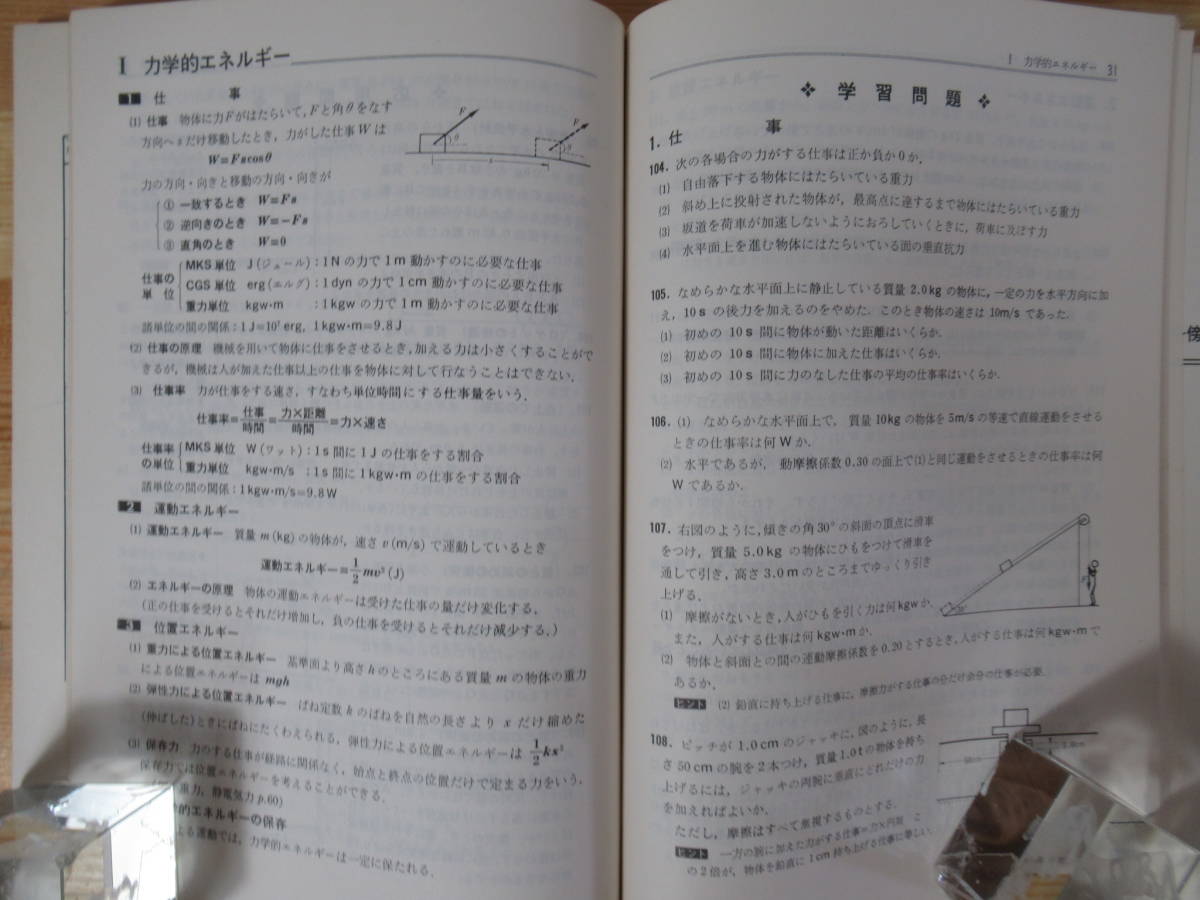 I 力学的エネルギー
1 仕事
(1) 仕事 物体に力Fがはたらいて，Fと角θをなす
方向へsだけ移動したとき，力がした仕事Wは
W=Fscosθ
力の方向・向きと移動の方向・向きが
① 一致するとき W=Fs
② 逆向きのとき W=−Fs
③ 直角のとき W=0
仕事の単位
MKS単位 J(ジュール)：1Nの力で1m動かすのに必要な仕事
CGS単位 erg(エルグ)：1dynの力で1cm動かすのに必要な仕事
重力単位 kgw·m ：1kgwの力で1m動かすのに必要な仕事
諸単位の間の関係：1J=10⁷erg，1kgw·m=9.8J
(2) 仕事の原理 機械を用いて物体に仕事をさせるとき，加える力は小さくすることがで
きるが，機械は人が加えた仕事以上の仕事を物体に対して行なうことはできない．
(3) 仕事率 力が仕事をする速さ，すなわち単位時間にする仕事量をいう．
仕事率=仕事/時間=力×距離/時間=力×速さ
仕事率の単位
MKS単位 W(ワット)：1s間に1Jの仕事をする割合
重力単位 kgw·m/s：1s間に1kgw·mの仕事をする割合
諸単位の間の関係：1kgw·m/s=9.8W
2 運動エネルギー
(1) 運動エネルギー 質量m(kg)の物体が，速さv(m/s)で運動しているとき
運動エネルギー=1/2mv²(J)
(2) エネルギーの原理 物体の運動エネルギーは受けた仕事の量だけ変化する．
(正の仕事を受けるとそれだけ増加し，負の仕事を受けるとそれだけ減少する．)
3 位置エネルギー
(1) 重力による位置エネルギー 基準面より高さhのところにある質量mの物体の重力
による位置エネルギーは mgh
(2) 弾性力による位置エネルギー ばね定数kのばねを自然の長さよりxだけ縮めた
(伸ばした)ときにばねにたくわえられる，弾性力による位置エネルギーは 1/2kx²
(3) 保存力 力のする仕事が経路に関係なく，始点と終点の位置だけで定まる力をいう．
保存力では位置エネルギーを考えることができる．
重力，静電気力p.60)
的エネルギーの保存
よる運動では，力学的エネルギーは一定に保たれる．
F
θ
s
F
θ
I 力学的エネルギー 31
❖ 学習問題 ❖
1. 仕事
104. 次の各場合の力がする仕事は正か負か0か．
(1) 自由落下する物体にはたらいている重力
(2) 斜め上に投射された物体が，最高点に達するまで物体にはたらいている重力
(3) 坂道を荷車が加速しないようにおろしていくときに，荷車に及ぼす力
(4) 水平面上を進む物体にはたらいている面の垂直抗力
105. なめらかな水平面上に静止している質量2.0kgの物体に，一定の力を水平方向に加
え，10sの後力を加えるのをやめた．このとき物体の速さは10m/sであった．
(1) 初めの10s間に物体が動いた距離はいくらか．
(2) 初めの10s間に物体に加えた仕事はいくらか．
(3) 初めの10s間に力のなした仕事の平均の仕事率はいくらか．
106. (1) なめらかな水平面上で，質量10kgの物体を5m/sの等速で直線運動をさせる
ときの仕事率は何Wか．
(2) 水平であるが，動摩擦係数0.30の面上で(1)と同じ運動をさせるときの仕事率は何
Wであるか．
107. 右図のように，傾きの角30°の斜面の頂点に滑車
をつけ，質量5.0kgの物体にひもをつけて滑車を
通して引き，高さ3.0mのところまでゆっくり引き
上げる．
(1) 摩擦がないとき，人がひもを引く力は何kgwか．
また，人がする仕事は何kgw·mか．
(2) 物体と斜面との間の運動摩擦係数を0.20とするとき，人がする仕事は何kgw·mで
あるか．
ヒント (2) 鉛直に持ち上げる仕事に，摩擦力がする仕事の分だけ余分の仕事が必要．
108. ピッチが1.0cmのジャッキに，図のように，長
さ50cmの腕を2本つけ，質量1.0tの物体を持ち
上げるには，ジャッキの両腕に垂直にどれだけの力
を加えればよいか．
ただし，摩擦はすべて無視するものとする．
ヒント 一方の腕に加えた力がする仕事=力×円周 こ
の2倍が，物体を鉛直に1cm持ち上げる仕事に等しい．
30°
傍